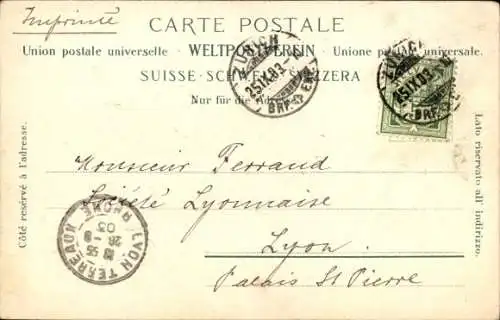 Imprimé
CARTE POSTALE
Union postale universelle · WELTPOSTVEREIN · Unione postale universale.
SUISSE · SCHWEIZ · SVIZZERA
Nur für die Adresse
Côté réservé à l'adresse.
Lato riservato all' indirizzo.
ZÜRICH
25.IX.03
BRF.EXP.
ZÜRICH
25.IX.03
BRF.EXP.
Monsieur Ferrand
Société Lyonnaise
Lyon.
Palais St Pierre
LYON TERREAUX RHONE
26 - 9
03